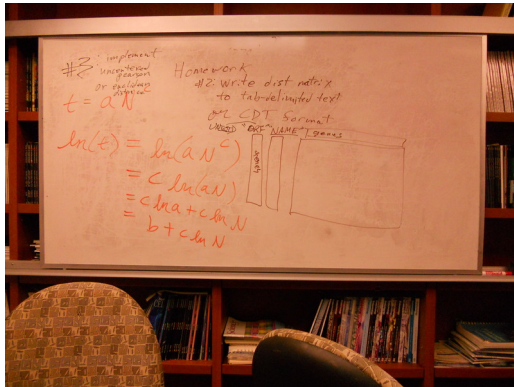 #3: implement
uncentered
pearson
or euclidean
distance
t = a N^c
ln(t) = ln(a N^c)
= c ln(aN)
= c ln a + c ln N
= b + c ln N
Homework
#2: Write dist matrix
to tab-delimited text
or CDT format
"ORF" "NAME" genes